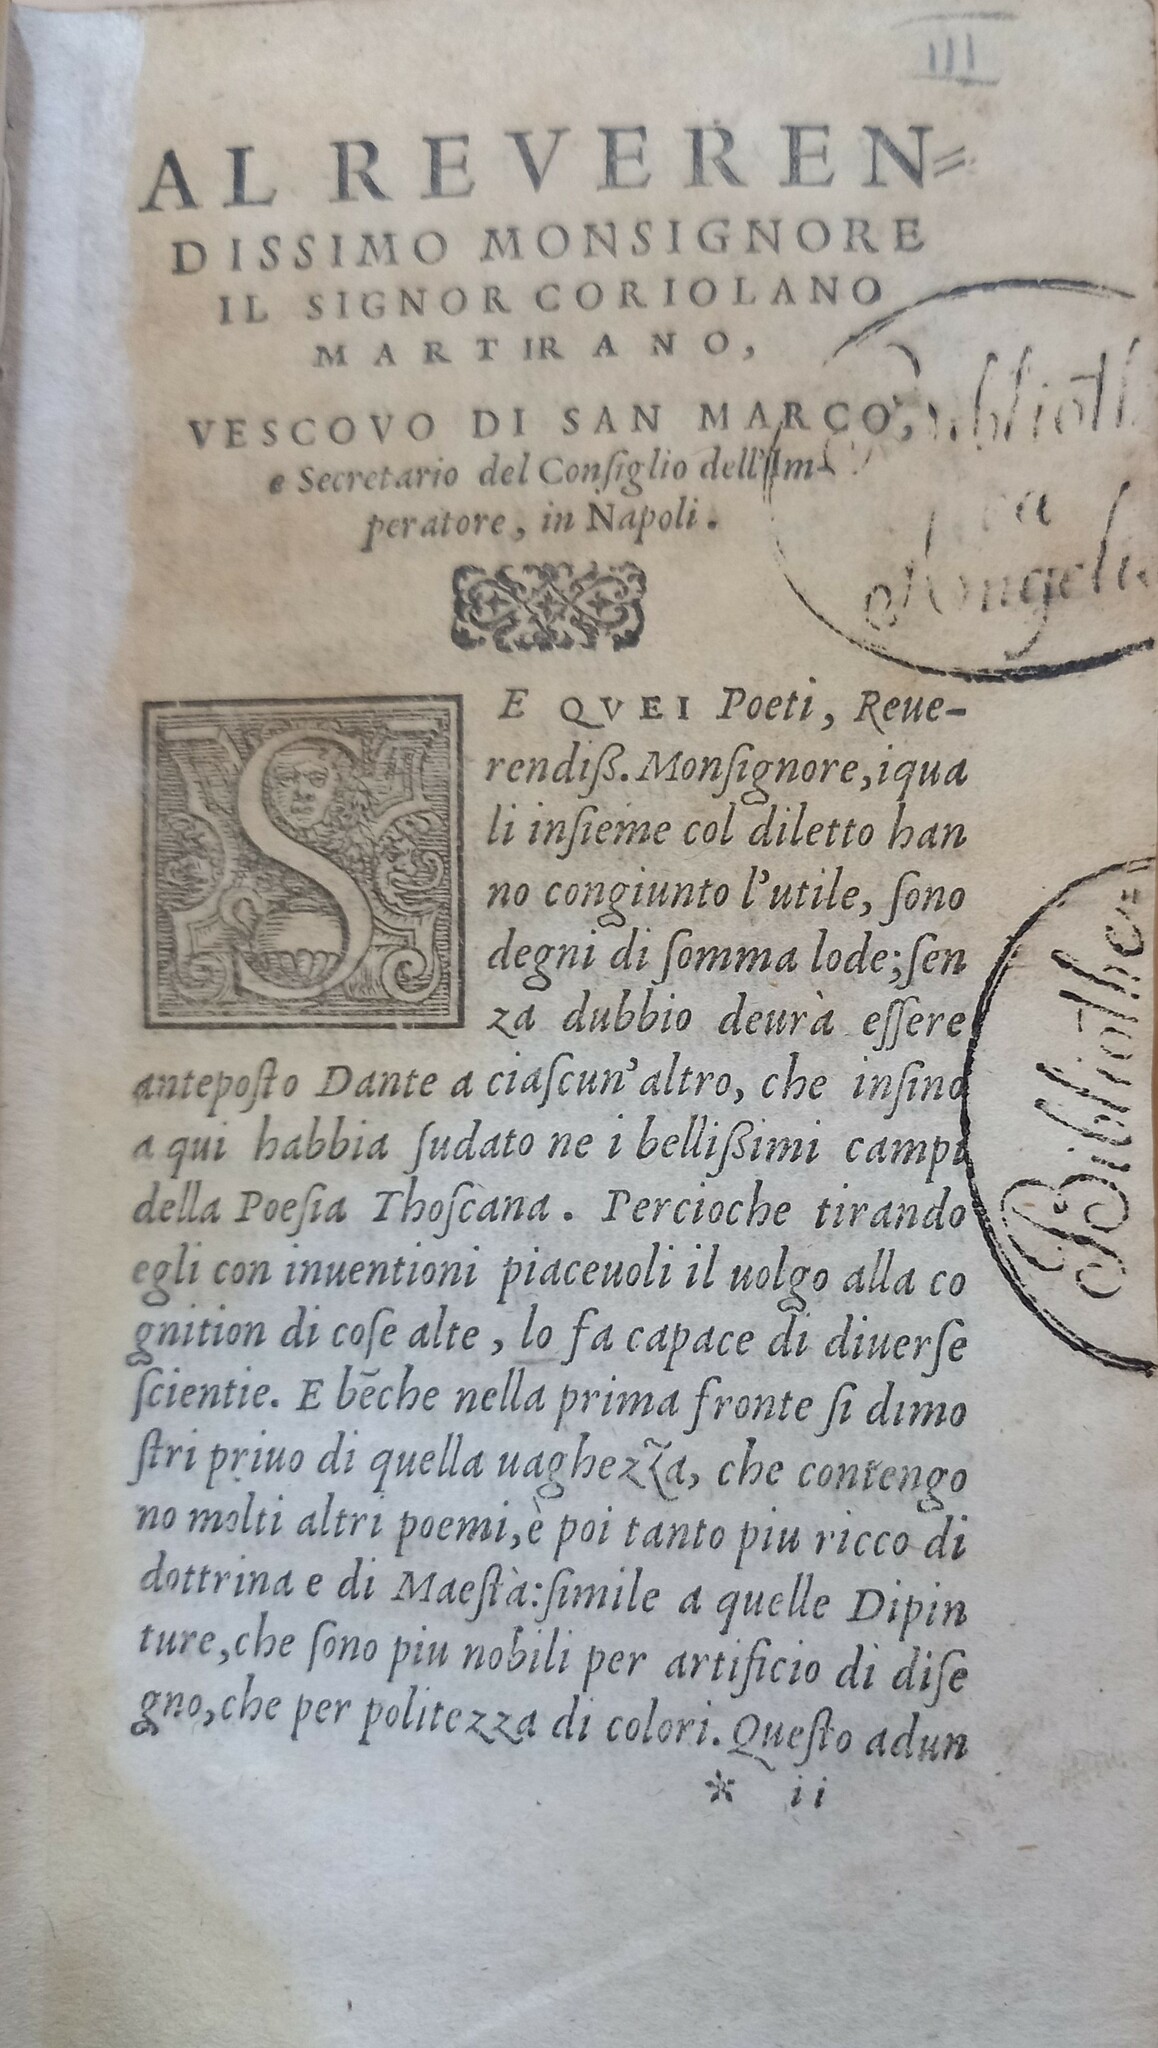 III
AL REVEREN=
DISSIMO MONSIGNORE
IL SIGNOR CORIOLANO
MARTIRANO,
VESCOVO DI SAN MARCO,
e Secretario del Conſiglio dell'Im-
peratore, in Napoli.
SE QVEI Poeti, Reue-
rendiß. Monſignore, iqua
li inſieme col diletto han
no congiunto l'utile, ſono
degni di ſomma lode; ſen
za dubbio deurà eſſere
antepoſto Dante a ciaſcun'altro, che inſino
a qui habbia ſudato ne i bellißimi campi
della Poeſia Thoſcana. Percioche tirando
egli con inuentioni piaceuoli il uolgo alla co
gnition di coſe alte, lo fa capace di diuerſe
ſcientie. E bēche nella prima fronte ſi dimo
ſtri priuo di quella uaghezza, che contengo
no molti altri poemi, è poi tanto piu ricco di
dottrina e di Maeſtà: ſimile a quelle Dipin
ture, che ſono piu nobili per artificio di diſe
gno, che per politezza di colori. Queſto adun
* ii
Biblioth
ca
Angelic
Bibliothec=